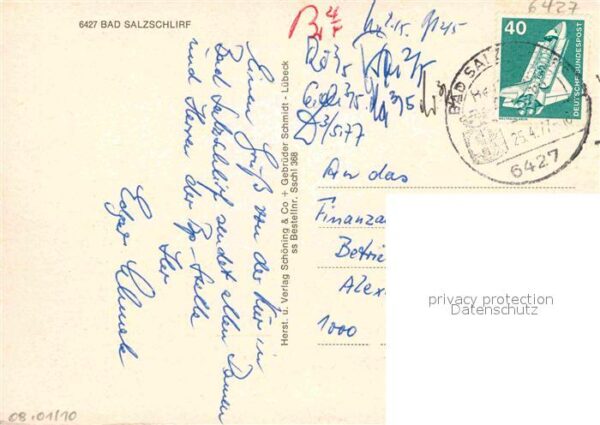 6427 BAD SALZSCHLIRF
6427
40
DEUTSCHE BUNDESPOST
BAD SALZ
25.4.77
6427
Einen Gruß von der Kur in
Bad Salzschlirf sendet allen Damen
und Herren der Rp-Stelle
Ihr
Edgar
Herst. u. Verlag Schöning & Co + Gebrüder Schmidt - Lübeck
ss Bestellnr. Sschl 368
D 3/5.77
An das
Finanza
Betrie
Alex
1000
privacy protection
Datenschutz
08.01/10